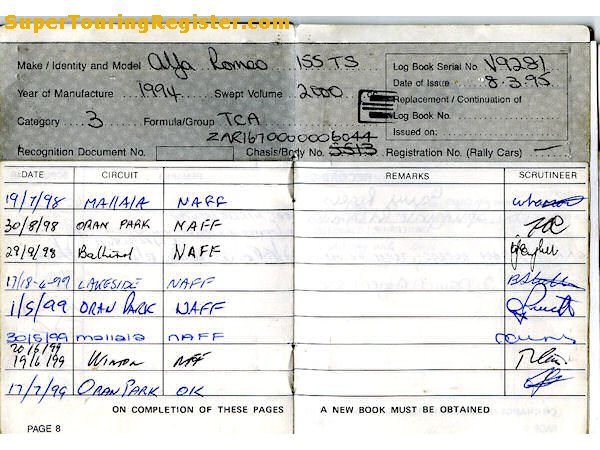 SuperTouringRegister.com
Make / Identity and Model Alfa Romeo 155 TS
Log Book Serial No V9281
Date of Issue 8.3.95
Year of Manufacture 1994 Swept Volume 2000
Replacement / Continuation of
Log Book No.
Category 3 Formula/Group TCA
Issued on:
ZAR16700000006044
Recognition Document No. Chassis/Body No. 5513 Registration No. (Rally Cars) —
DATE CIRCUIT REMARKS SCRUTINEER
19/7/98 MALLALA NAFF
30/8/98 ORAN PARK NAFF
29/9/98 NAFF
17/18-4-99 LAKESIDE NAFF
1/5/99 ORAN PARK NAFF
30/5/99 mallala NAFF
20/6/99
19/6/99 Winton NFF
17/7/99 ORAN PARK OK
ON COMPLETION OF THESE PAGES A NEW BOOK MUST BE OBTAINED
PAGE 8